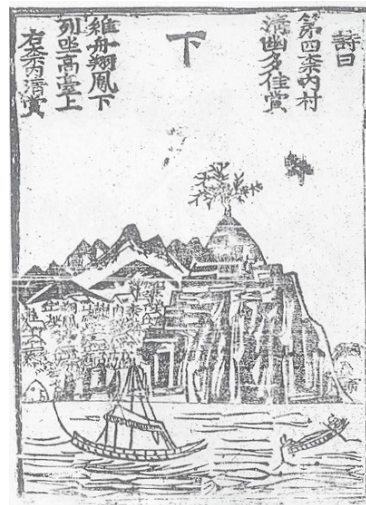 詩曰
第四柰内村
清幽多佳賞
下
維舟翔鳳下
列坐高臺上
右柰内清賞